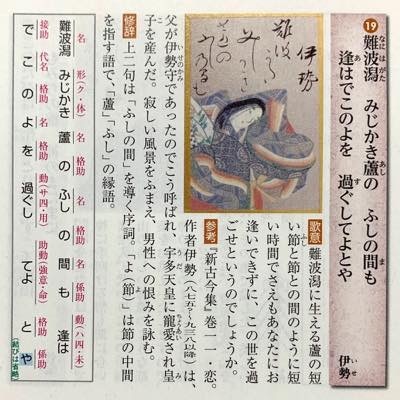 19
難波潟 みじかき蘆の ふしの間も
逢はでこのよを 過ぐしてよとや
伊勢
なにはがた
あし
ま
あ
す
いせ
伊勢
歌意 難波潟に生える蘆の短
い節と節との間のように短
い時間でさえもあなたにお
逢いできずに、この世を過
ごせというのでしょうか。
ふし
参考 『新古今集』巻一一・恋。
作者伊勢(八七五?~九三八以降)は、
父が伊勢守であったのでこう呼ばれ、宇多天皇に寵愛され皇
いせのかみ
うだ
ちょうあい
子を産んだ。寂しい風景をふまえ、男性への恨みを詠む。
修辞 上二句は「ふしの間」を導く序詞。「よ(節)」は節の中間
を指す語で、「蘆」「ふし」の縁語。
名 形(ク・体) 名 格助 名 格助 名 係助 動(ハ四・未)
難波潟 みじかき 蘆 の ふし の 間 も 逢は
接助 代名 格助 名 格助 動(サ四・用) 助動(強意・命) 格助 係助
で こ の よ を 過ぐし てよ と や
(結びは省略)